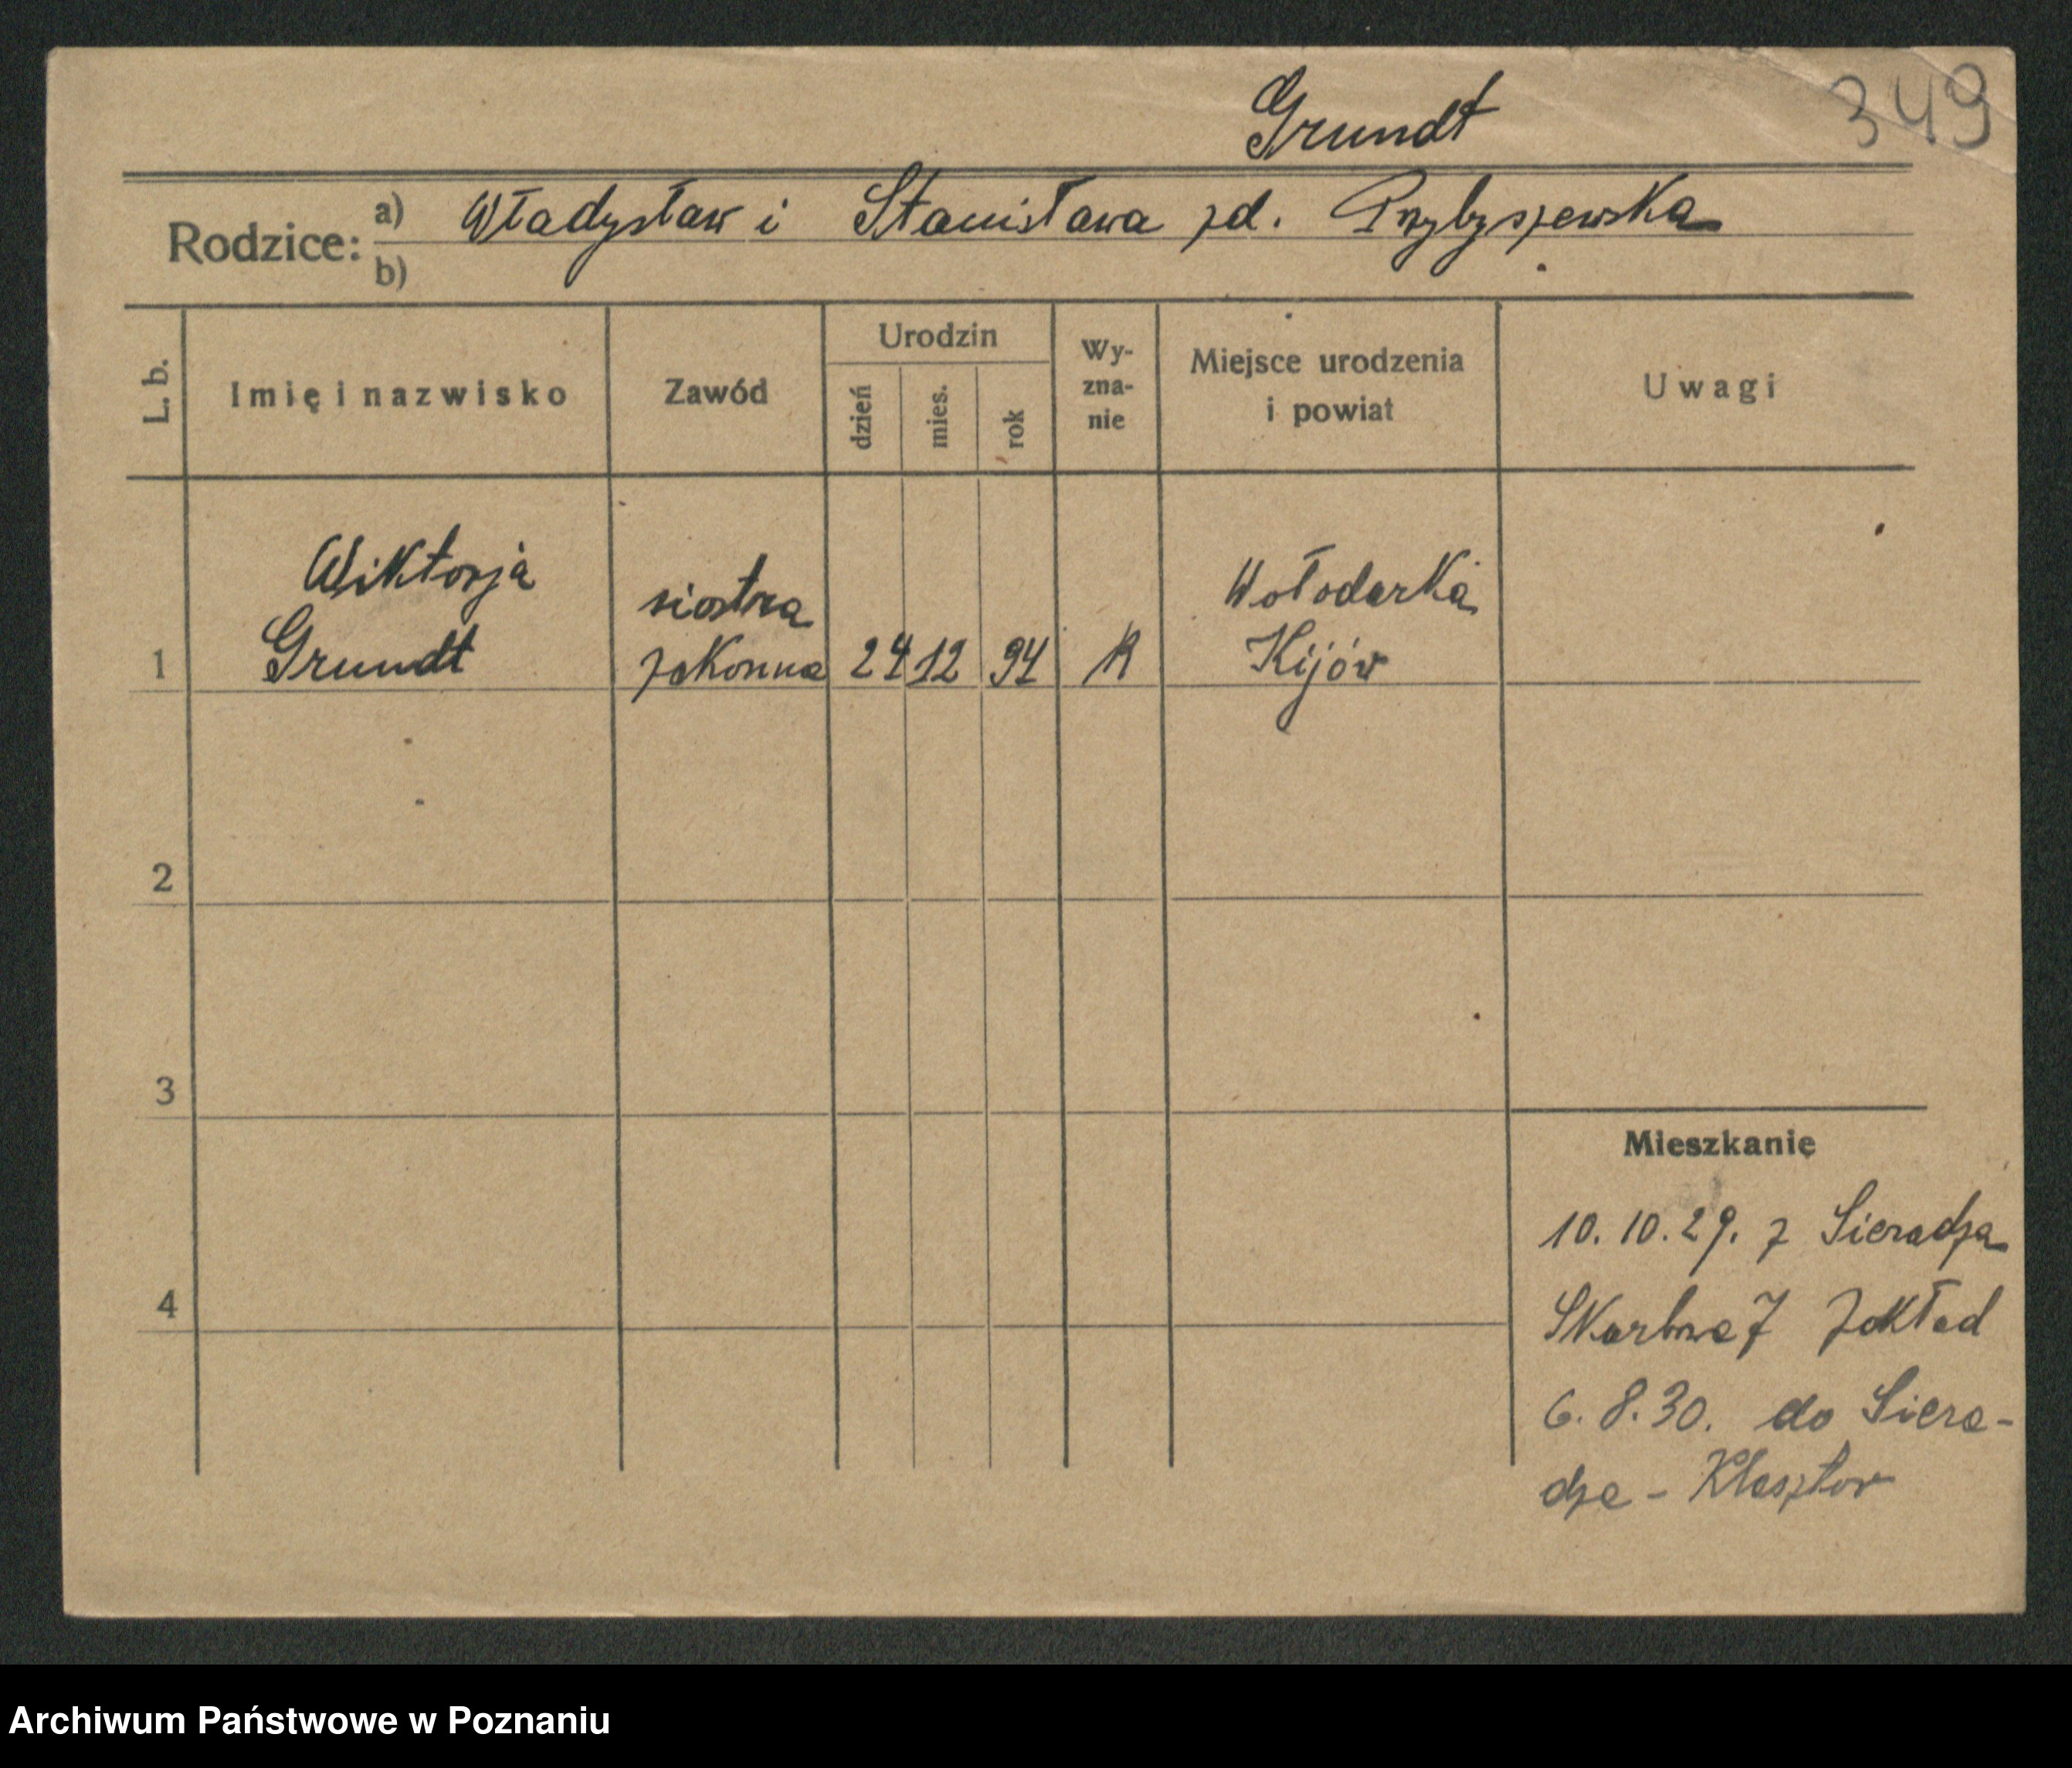 Grundt
349
Rodzice: a) Władysław i Stanisława zd. Przybyszewska
b)
L. b.
Imię i nazwisko
Zawód
Urodzin
dzień
mies.
rok
Wy-
zna-
nie
Miejsce urodzenia
i powiat
Uwagi
1
Wiktorja
Grundt
siostra
zakonna
24
12
94
R
Wołodarka
Kijów
2
3
4
Mieszkanie
10.10.29. z Sieradza
Skarbowa 7 Zakład
6.8.30. do Siera-
dza - Klasztor
Archiwum Państwowe w Poznaniu